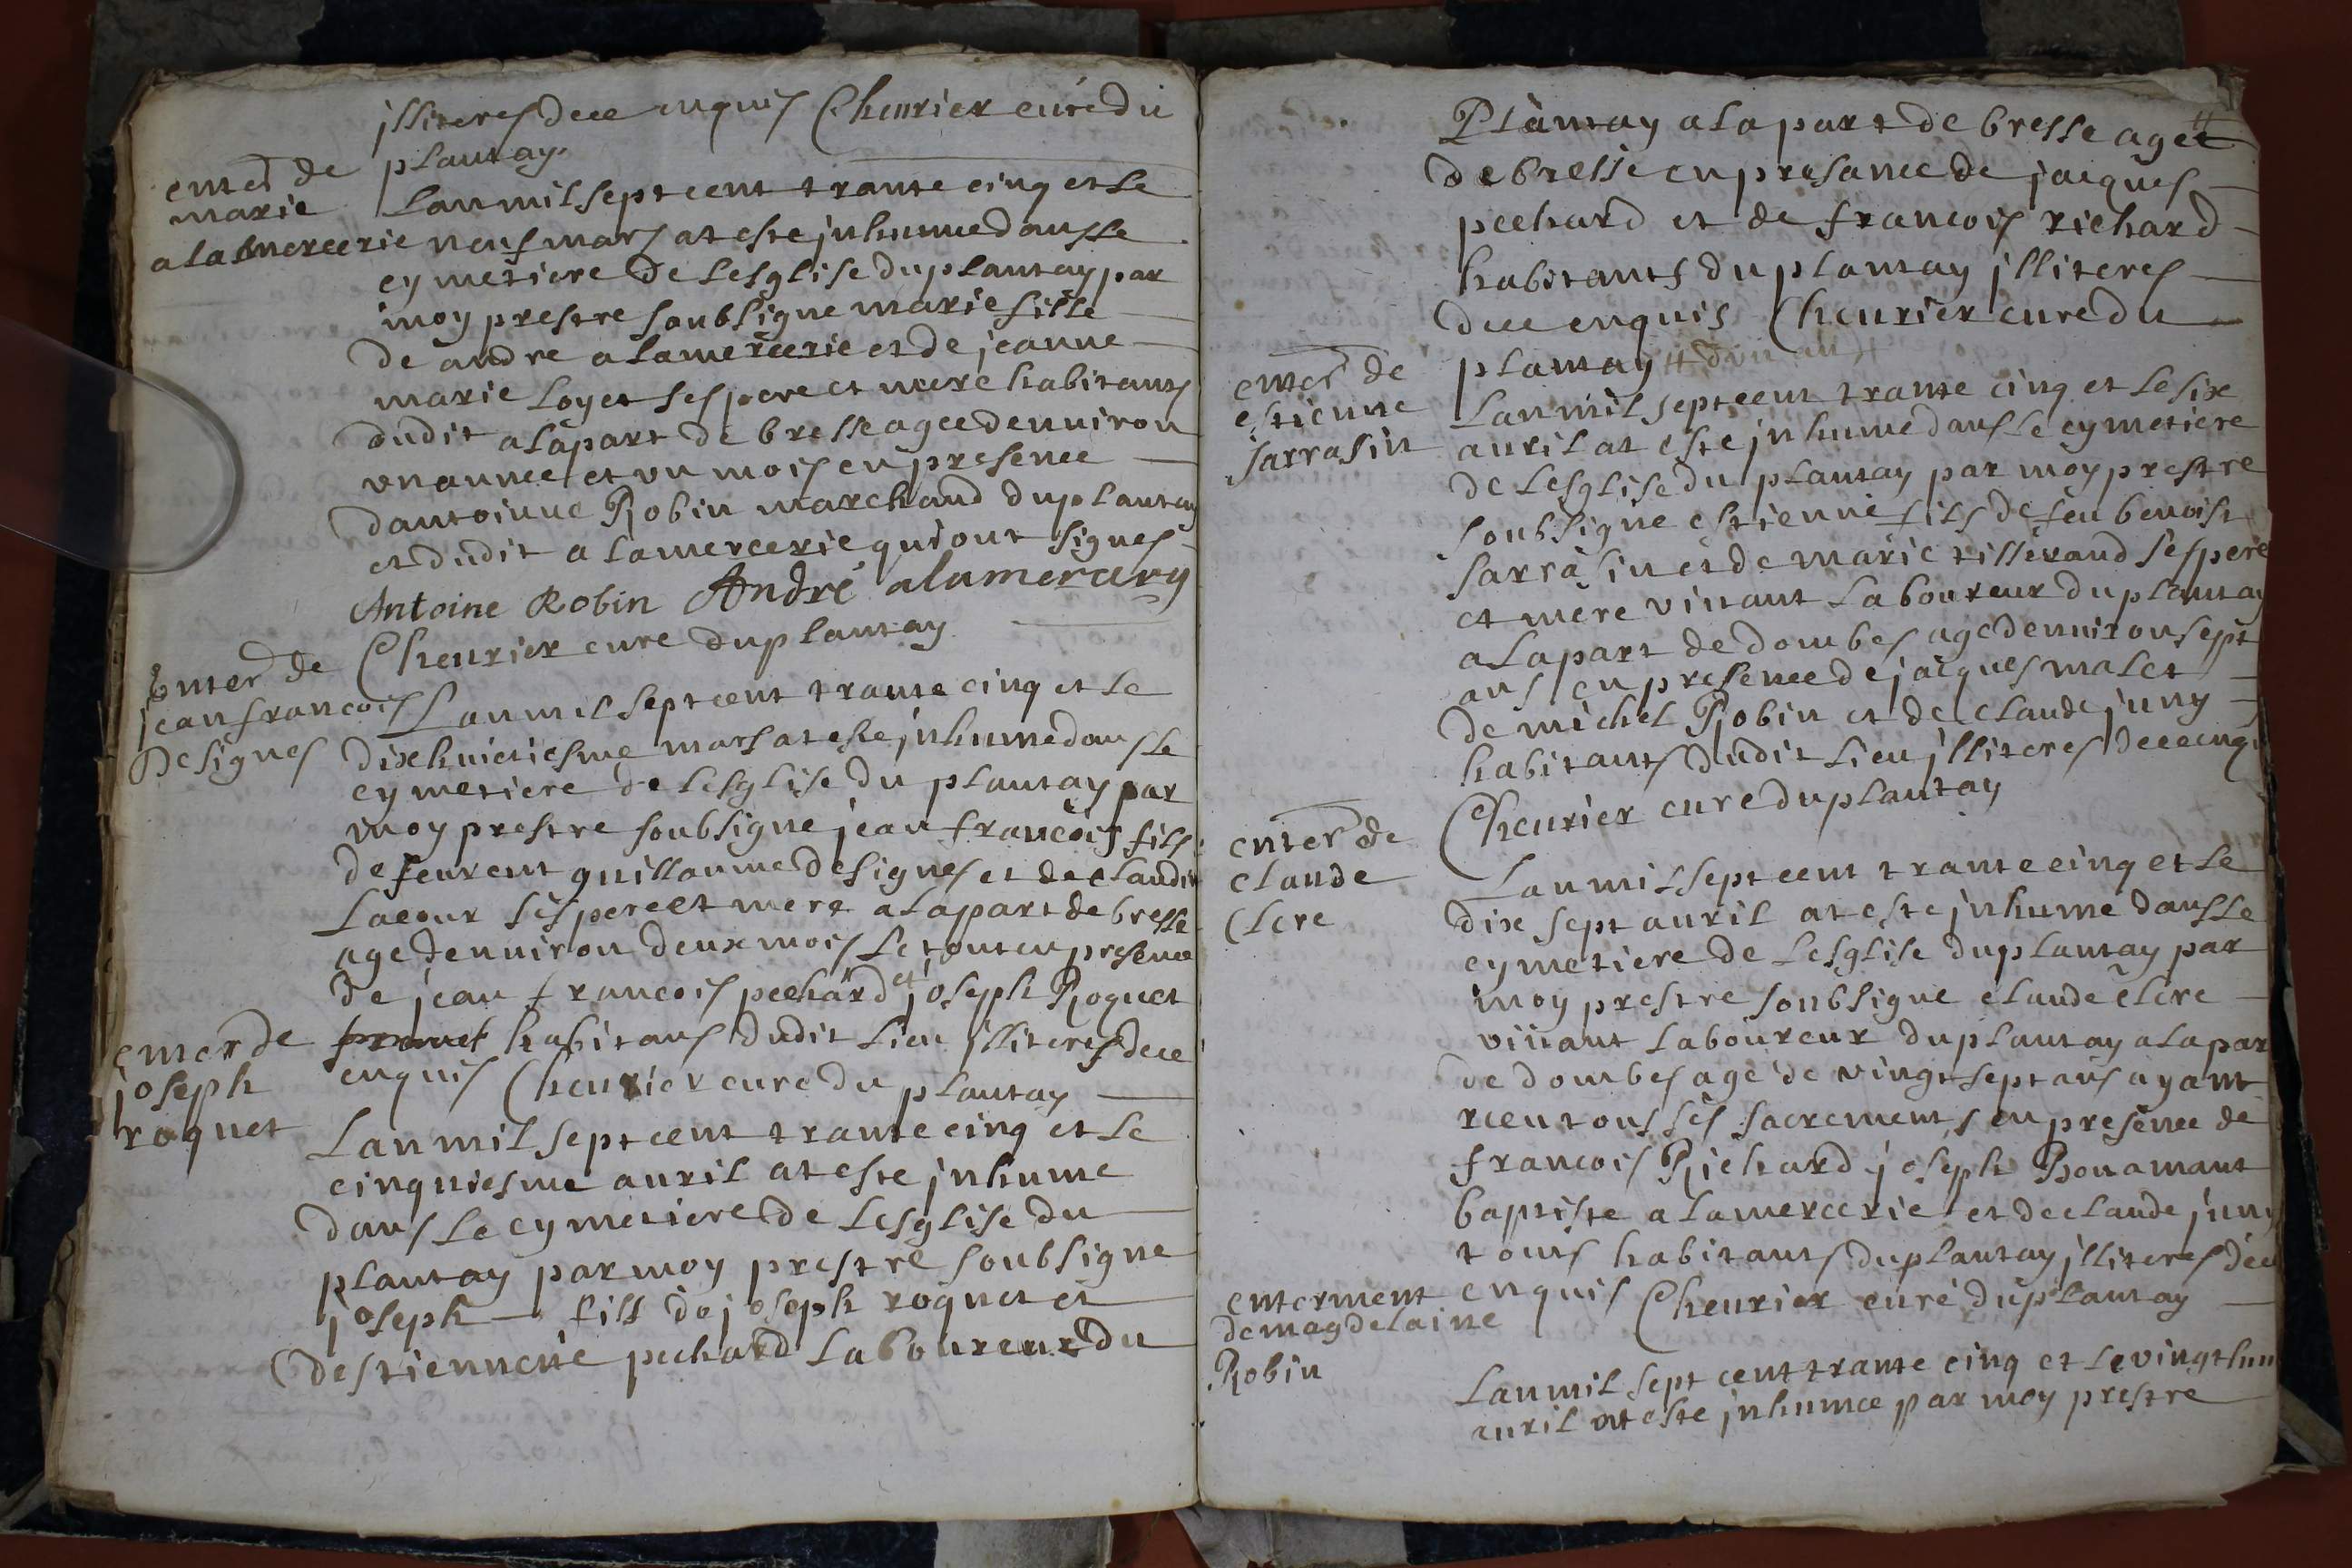 illiteres de ce enquis Cheurier curé du
plantay
enter de
marie
alamercerie
Lan mil sept cent trante cinq et le
neuf mars at este inhumée dans le
cymetiere de lesglise du plantay par
moy prestre soubsigne marie fille
de andre alamercerie et de jeanne
marie Loyet ses pere et mere habitants
dudit alapart de bresse agee denuiron
vn annee et vn mois en presence
dantoinne Robin marchand du plantay
et dudit alamercerie qui ont signes
Antoine Robin André alamercery
Cheurier cure du plantay
Enter de
jean francois
Designes
Lan mil sept cent trante cinq et le
dixhuictiesme mars at este inhumé dans le
cymetiere de lesglise du plantay par
moy prestre soubsigne jean francois fils
de feu vent guillaume designes et de claudin
Lacour ses pere et mere alapart de bresse
age denuiron deux mois le tout en presence
de jean francois pechard et joseph Roquet
habitans dudit lieu illiteres de ce
enquis Cheurier cure du plantay
enter de
joseph
roquet
Lan mil sept cent trante cinq et le
cinquiesme auril at este inhume
dans le cymetiere de lesglise du
plantay par moy prestre soubsigne
joseph fils de joseph roquet et
destiennene pechard laboureur du
Plantay alapart de bresse ageé #
de bresse en presance de jacques
pechard et de francois richard
habitants du plantay illiteres
de ce enquis Cheurier cure du
plantay # dun an #
enter de
estienne
sarrasin
Lan mil sept cent trante cinq et le six
auril at este inhumé dans le cymetiere
de lesglise du plantay par moy prestre
soubsigne estienne fils de feu benoist
sarrasin et de marie tisserand ses pere
et mere viuant laboureur du plantay
alapart de dombes age denuiron sept
ans en presence de jacques malet
de michel Robin et de claude juny
habitants dudit lieu illiteres de ce enqui
Cheurier cure du plantay
enter de
claude
Clere
Lan mil sept cent trante cinq et le
dix sept auril at este inhumé dans le
cymetiere de lesglise du plantay par
moy prestre soubsigne claude clere
viuant laboureur du plantay alapar
de dombes age de vingt sept ans ayant
receu tous ses sacrements en presence de
francois Richard joseph Bonamant
baptiste alamercerie et de claude juny
tous habitants du plantay illiteres de ce
enquis Cheurier curé du plantay
enterment
de magdelaine
Robin
Lan mil sept cent trante cinq et le vingt huit
auril at este inhumee par moy prestre